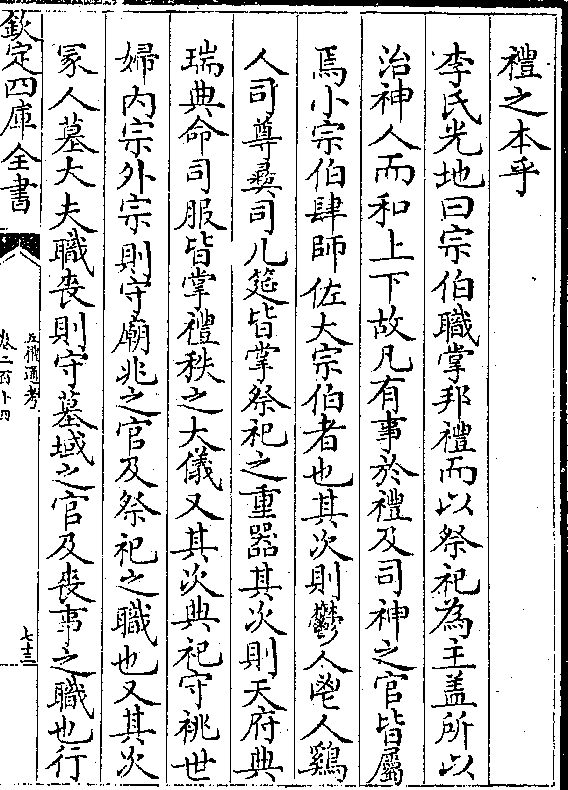 禮之本乎
李氏光地曰宗伯職掌邦禮而以祭祀為主盖所以
治神人而和上下故凡有事於禮及司神之官皆屬
焉小宗伯肆師佐大宗伯者也其次則鬱人鬯人鷄
人司尊彞司几筵皆掌祭祀之重器其次則天府典
瑞典命司服皆掌禮秩之大儀又其次典祀守祧世
婦内宗外宗則守廟兆之官及祭祀之職也又其次
冢人墓大夫職喪則守墓域之官及喪事之職也行
欽定四庫全書
五禮通考
卷二百十四
七十三